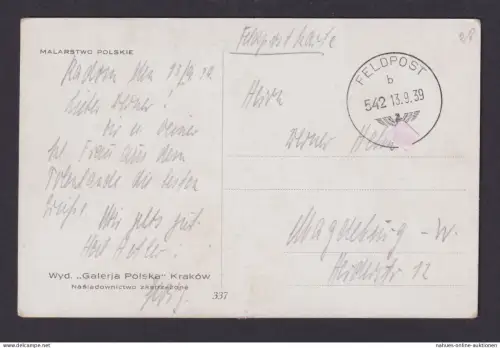 MALARSTWO POLSKIE
Radom den 13/9 39
Lieber Werner!
Dir u Deiner
Frau aus dem
Polenlande die besten
Grüße. Mir gehts gut.
Heil Hitler!
Wyd. „Galerja Polska" Kraków
Naśladownictwo zastrzeżone
337
Feldpostkarte
FELDPOST
b
542 13.9.39
Herrn
Werner
Magdeburg - W.
12
delcampe.net
nahues-online and more